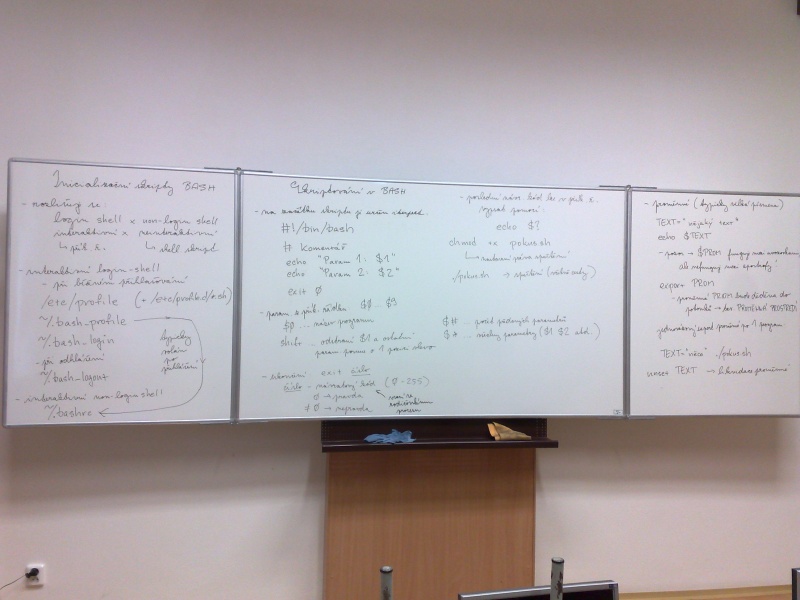 Inicializační skripty BASH
- rozlišuj se:
login shell x non-login shell
interaktivní x neinteraktivní
↳ přík. ř. ↳ shell skript
- interaktivní login-shell
- při běžném přihlašování
/etc/profile (+ /etc/profile.d/*.sh)
~/.bash_profile
~/.bash_login
- při odhlášení
~/.bash_logout
typicky
volán
po
přihlášení
- interaktivní non-login shell
~/.bashrc
Skriptování v BASH
- na začátku skriptu je určen interpret
#!/bin/bash
# komentář
echo "Param 1: $1"
echo "Param 2: $2"
exit 0
- param z přík. řádku $0 ... $9
$0 ... název programu
shift ... odstraní $1 a ostatní
param posune o 1 pozici vlevo
- ukončení exit číslo
číslo - návratový kód (0-255)
0 → pravda
≠0 → nepravda
vrací se
rodičovskému
procesu
- poslední návr. kód lze v přík. ř.
vypsat pomocí:
echo $?
chmod +x pokus.sh
↳ nastavení práva spuštění
./pokus.sh → spuštění
$# ... počet předaných parametrů
$* ... všechny parametry ($1 $2 atd.)
- proměnné (typicky velká písmena)
TEXT="nějaký text"
echo $TEXT
- pozor → $PROM fungují mezi uvozovkami,
ale nefungují mezi apostrofy!
export PROM
- proměnná PROM bude děděna do
potomků → tzv PROMĚNNÁ PROSTŘEDÍ
jednorázový export proměnné pro 1 program
TEXT="něco" ./pokus.sh
unset TEXT → likvidace proměnné